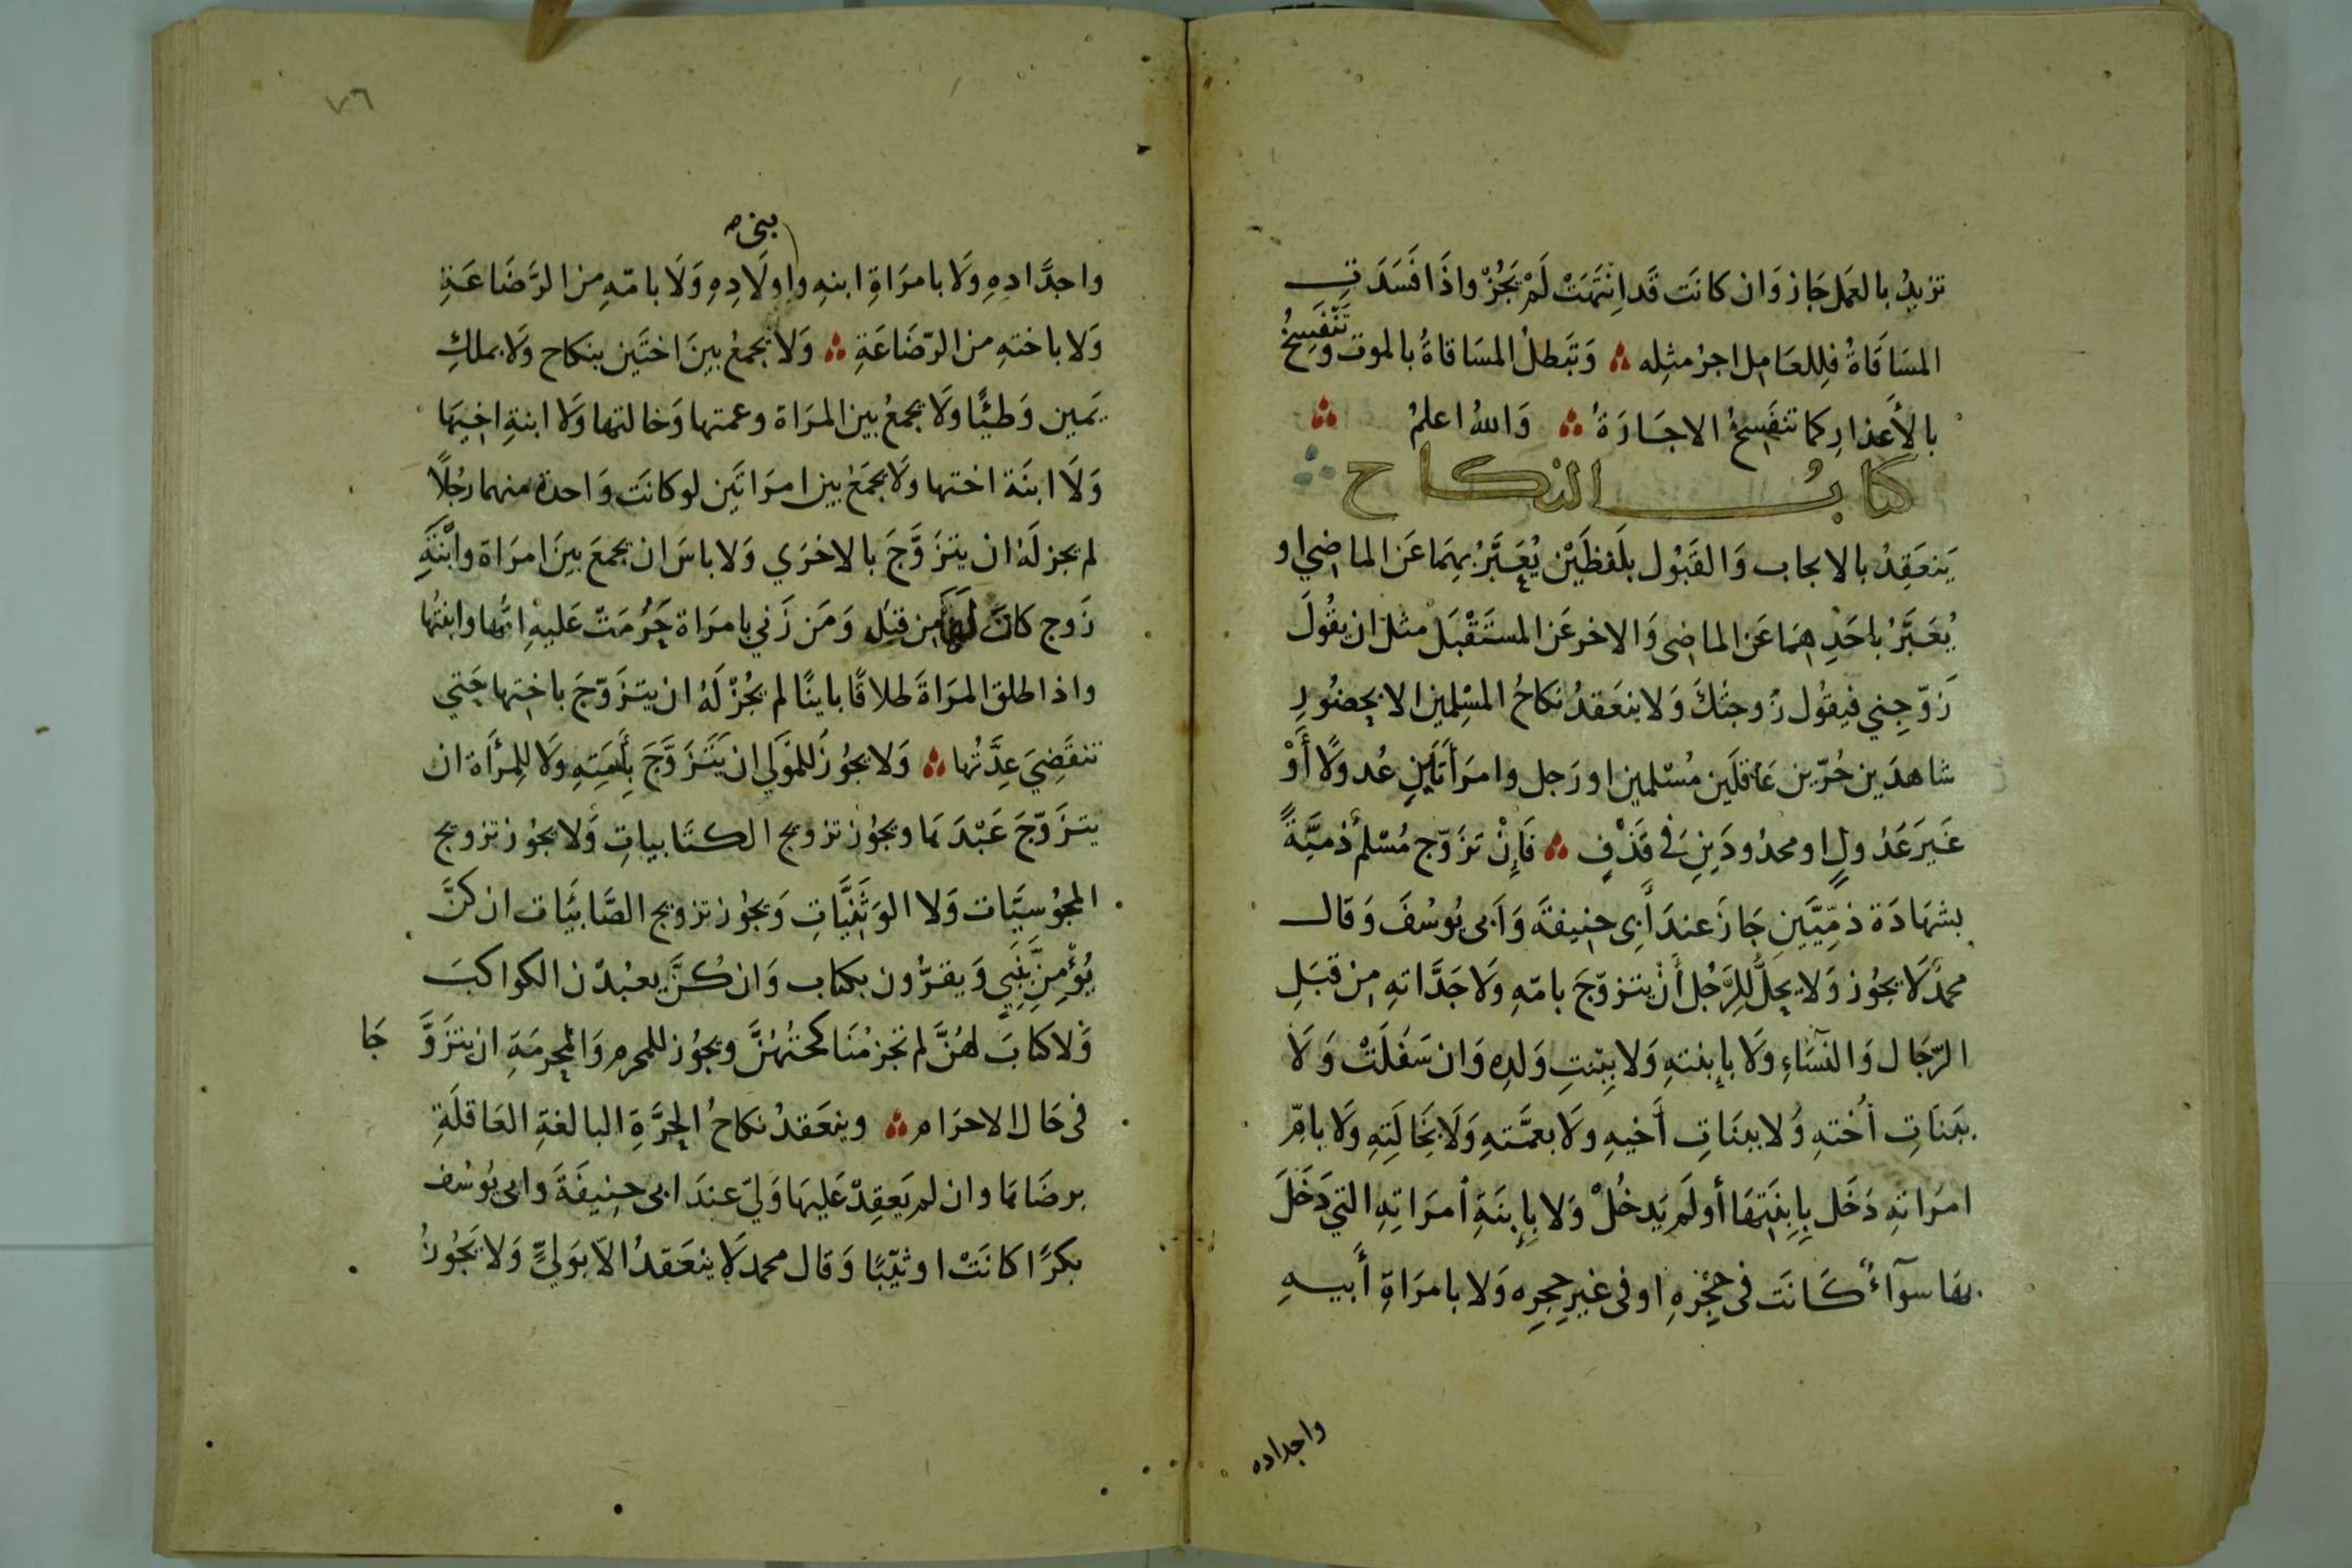 تزيدُ بالعَمل جَاز وَان كانَت قَد انْتَهَتْ لَمْ يَجُزْ واذَا فَسَدَتِ
المسَاقَاةُ فلِلعَامِل اجرُ مثلِه وَتَبطلُ المسَاقاةُ بالموت وَتَنْفَسِخُ
بالأَعذارِ كما تنفَسِخُ الاجَارَةُ وَاللهُ اعلمُ
كتابُ النكاح
يَنعَقِدُ بالايجاب وَالقَبُول بلَفظَيْن يُعَبَّرُ بهِمَا عَن الماضِي او
يُعَبَّرُ باحَدِهِمَا عَن الماضِى وَالاخر عَن المستَقْبَل مثل ان يقُولَ
زَوّجِني فيقُول زَوجتُكَ وَلا ينعَقدُ نكاحُ المسْلِمين الا بحضُورِ
شاهدَين حُرّين عَاقلَين مُسْلمين او رَجل وامرَأتَين عُدولًا أَوْ
غَيرَ عَدُولٍ او محدُودَينِ فى قَذْفٍ فَإِنْ تزَوّج مُسْلمٌ ذميَّةً
بشهَادَة ذمّيَّينِ جَازَ عندَ أَبى حنِيفَة وَأبى يُوسُفَ وَقال
محمدٌ لَا يجُوز وَلا يحلُّ للِرَّجُل أَنْ يتزوّجَ بامّهِ وَلَا جَدَّاتهِ مِن قبَلِ
الرّجَال وَالنسَاءِ وَلَا بإبنتهِ وَلا ببِنتِ وَلدِه وَان سَفُلَتْ وَلَا
ببَنَاتِ أُختهِ وَلا ببنَاتِ أَخيهِ وَلَا بعمَّتهِ وَلَا بخَالَتِهِ وَلَا بامّ
امرَاتهِ دَخَل بِابنَتِهَا أو لَم يَدخُلْ وَلا بِإبنَةِ أمرَاتِهِ التي دَخَلَ
بهَا سوآءً كَانَت فى حجْرهِ او فى غيرِ حجرِه وَلا بامرَاةِ أَبيهِ
واجداده
٧٦
بنى
واجدَّادِهِ وَلَا بامرَاةِ ابنهِ واولَادِهِ وَلَا بامّهِ من الرَّضَاعَةِ
وَلا باختهِ من الرّضَاعَةِ وَلا يجمعُ بينَ اختَين بنكاح وَلا بملكِ
يَمين وَطئًا ولَا يجمعُ بين المرَاة وعمتها وَخالتها وَلا ابنةِ اخيهَا
وَلَا ابنَة اختها ولَا يجمَعُ بين امرَاتَين لو كانَت وَاحدة منهما رجُلًا
لم يجز لَهُ ان يتزَوَّجَ بالاخرَي وَلا باسَ ان يجمعَ بينَ امرَاة وابْنَةِ
زَوج كانَ لها من قبَل وَمَن زَني بامرَاة حَرُمَتْ عَليهِ امُّها وابنتُها
واذا طلق المرَاةَ طلاقًا باينًا لم يجُزْ لَهُ ان يتزَوّجَ باختِها حَتي
تنقَضِيَ عِدَّتُها وَلا يجُوز للمَولَي ان يَتَزَوَّجَ بأَمَتِهِ وَلَا لِلمرأة ان
يتزَوّجَ عَبْدَهَا ويجُوز تزويج الكتَابياتِ وَلا يجوُز تزويج
المجُوسيَّات وَلا الوَثَنِيَّاتِ وَيجُوز تزويج الصَّابئَيات ان كنَّ
يُؤْمِنَّ بنَبِي وَيقرُّون بكتاب وَان كُنَّ يعبُدْن الكواكبَ
وَلا كتابَ لهُنَّ لم تجز مُنَاكحتُهُنَّ ويجُوز للمحرم وَالمحرمَةِ ان يتزَوَّجَا
فى حَال الاحرَام وينعَقدُ نكاحُ الحرَّةِ البالغةِ العَاقلَةِ
برضَاهَا وان لم يَعقِدْ عَليهَا وَليّ عندَ ابى حنِيفَةَ وابى يُوسُف
بكرًا كانَتْ او ثيّبًا وَقال محمد لَا ينعَقدُ الّا بوَليٍّ وَلا يَجُوزُ